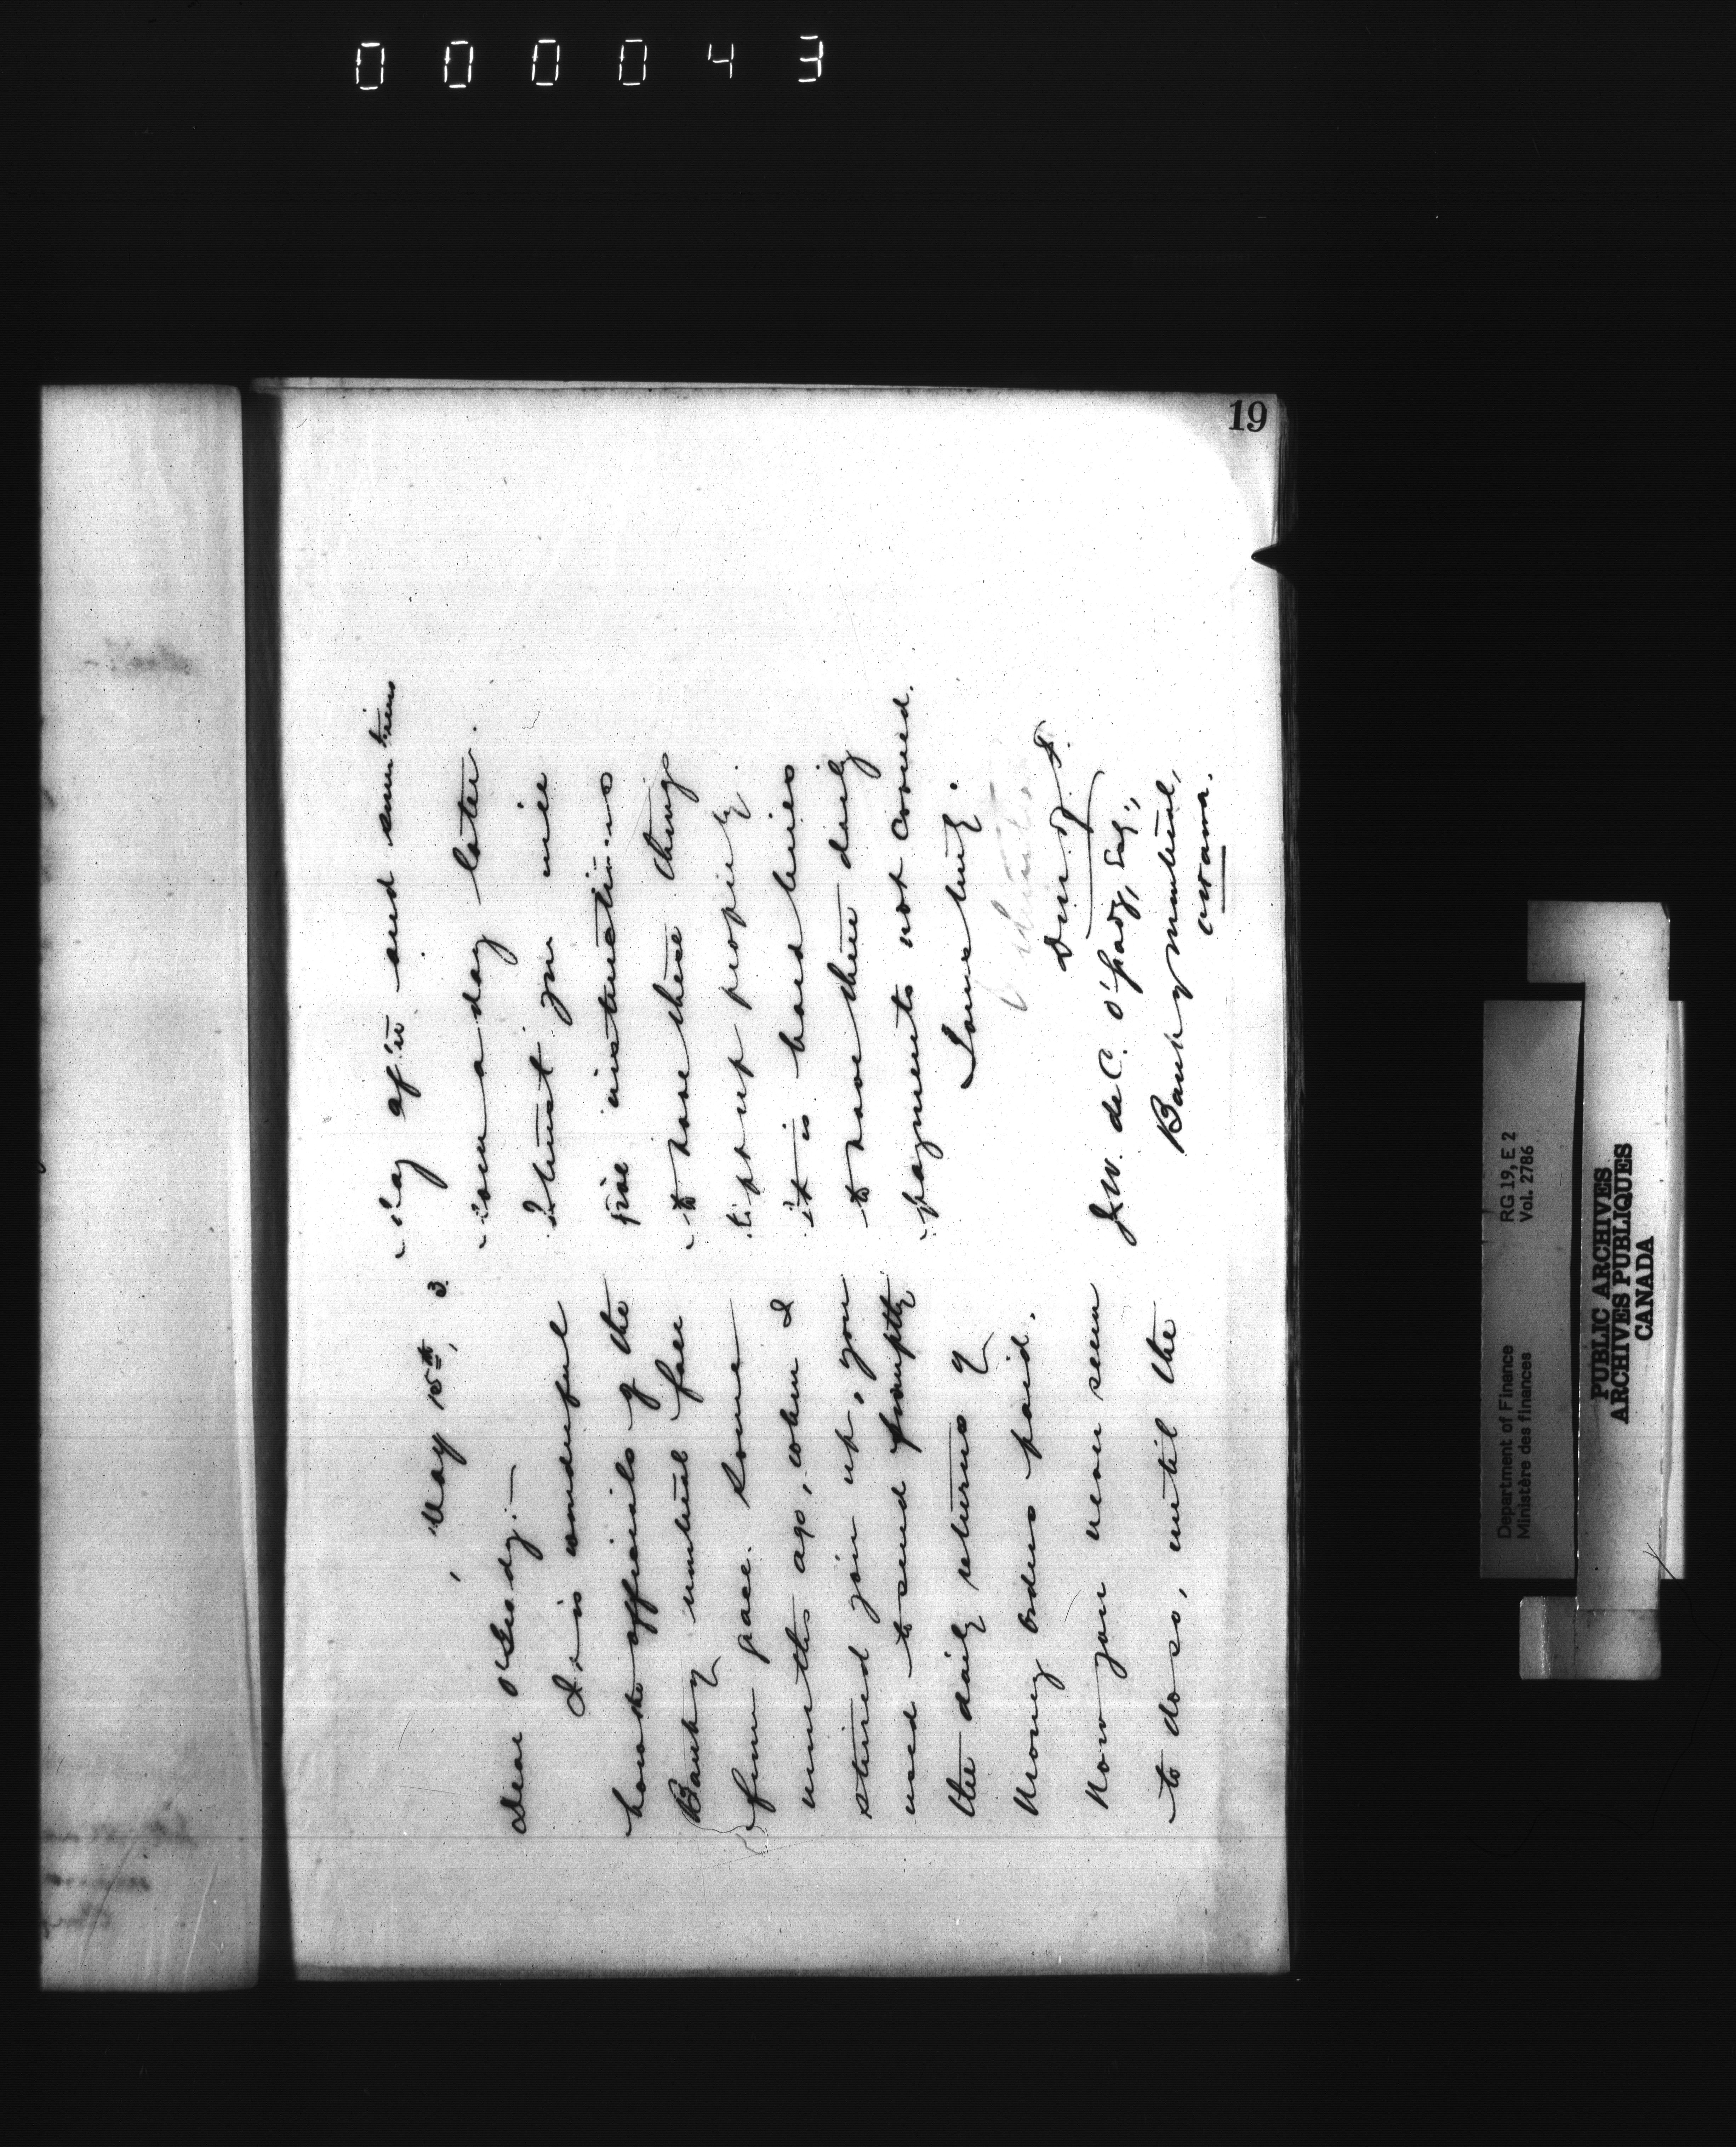 000043
19
May 15th, 3.
Dear O'Grady:—
It is wonderful
how the officials of the
Bank of Montreal fall
from grace. Some
months ago, when I
stirred you up, you
used to send promptly
the daily returns of
Money Orders paid.
Now you never seem
to do so, until the
day after and sometimes
even a day later.
I trust you will
give instructions
to have these things
kept up properly.
it is hard lines
to have these daily
payments not covered.
Yours truly.
D. M. of F.
J.W. de C. O'Grady, Esq.,
Bank of Montreal,
Ottawa.
Department of Finance
Ministère des finances
RG 19, E 2
Vol. 2786
PUBLIC ARCHIVES
ARCHIVES PUBLIQUES
CANADA